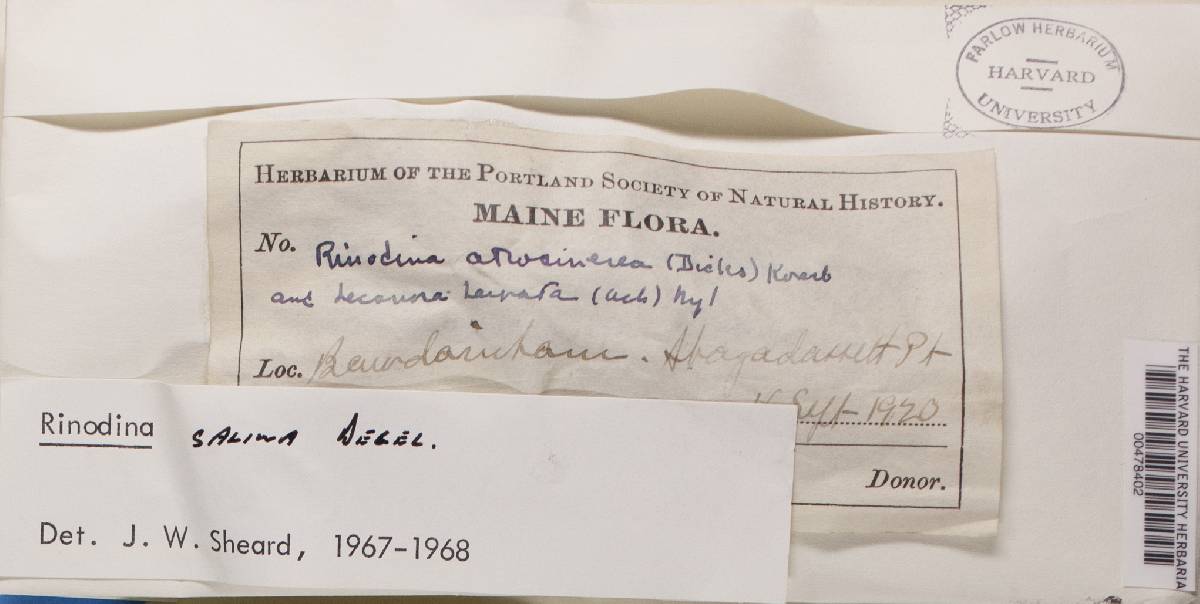 FARLOW HERBARIUM
HARVARD
UNIVERSITY
HERBARIUM OF THE PORTLAND SOCIETY OF NATURAL HISTORY.
MAINE FLORA.
No. Rinodina atrocinerea (Dicks) Koerb
and Lecanora (Ach) Nyl
Loc. Bowdoinham. Abagadassett Pt
Sept 1920
Donor.
Rinodina SALINA DEGEL.
Det. J. W. Sheard, 1967-1968
THE HARVARD UNIVERSITY HERBARIA
00478402